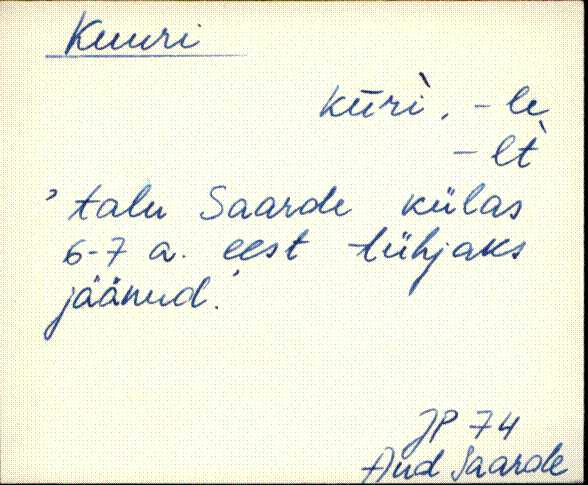 Kuuri
kūri`, -le
-lt`
'talu Saarde külas
6-7 a. eest tühjaks
jäänud.'
JP 74
And Saarde